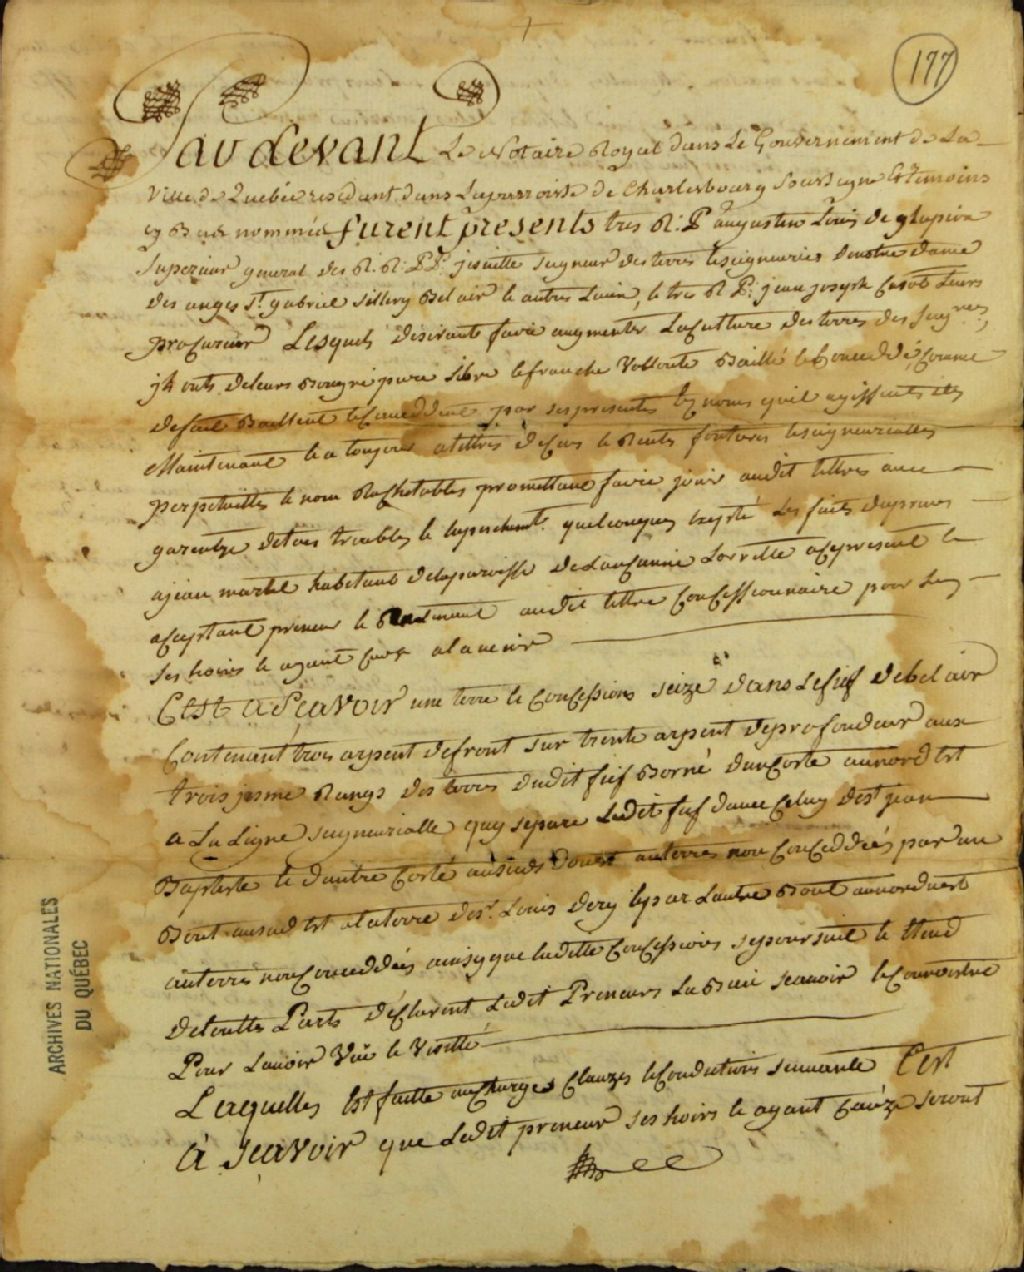 177
Par devant Le Notaire Royal dans Le Gouvernement de La
Ville de Quebec residant dans La parroisse de Charlesbourg soussigne Et temoins
cy bas nommés furent presents tres R. P. augustin Louis de glapion
Superieur general des R. R. P. P. jesuitte seigneur des terres & seigneuries de notre dame
des anges St. gabriel Sillery Bel air & autres Lieux, & tres R. P. jean joseph Casot Leurs
procureur Lesquels desirants faire augmenter La Culture des terres des
onts de leurs bon gré pure libre & franche Vollonté Baillé & Conceddé, Comme
de fait Baillent & Conceddent par ses presentes noms qu'il agissent dès
Maintenant & a toujours a tittres de Cens & Rents fontieres & seigneurialles
perpetuittes & non Rachetables promettant faire jouir audit tittres avec
garentye de tous troubles & quelconques excepté Les faits du prince
a jean martel habitant de la parroisse de Lancienne Lorrette a ce present &
aceptant preneur & Retenant audit tittre Concessionnaire pour Luy
ses hoirs & ayant cause a lavenir
C'est a Sçavoir une terre & Concessions size dans Le fief de bel air
Contenant trois arpent de front sur trente arpent de profondeur aux
troisiesme Rangs des terres dudit fief Borné dun Costé au nord Est
a La Ligne seigneurialle quy separe Ledit fief davec Celuy de St jean
Baptiste & dautre Costé au sud ouest au terres non Conceddées par un
Bout au sud Est a la terre de Sr. Louis dery & par Lautre Bout au norduest
au terres non Conceddées ainsy que Laditte Concessions se poursuit & Etend
de toutte Parts déClarent Ledit Preneurs La Bien scavoir & Connoistre
Pour Lavoir Vüe & Visitté
Lesquelles Est faitte au Charges Clauzes & Conditions suivante C'est
à sçavoir que Ledit preneur ses hoirs & ayant Cauze seront
ARCHIVES NATIONALES
DU QUÉBEC